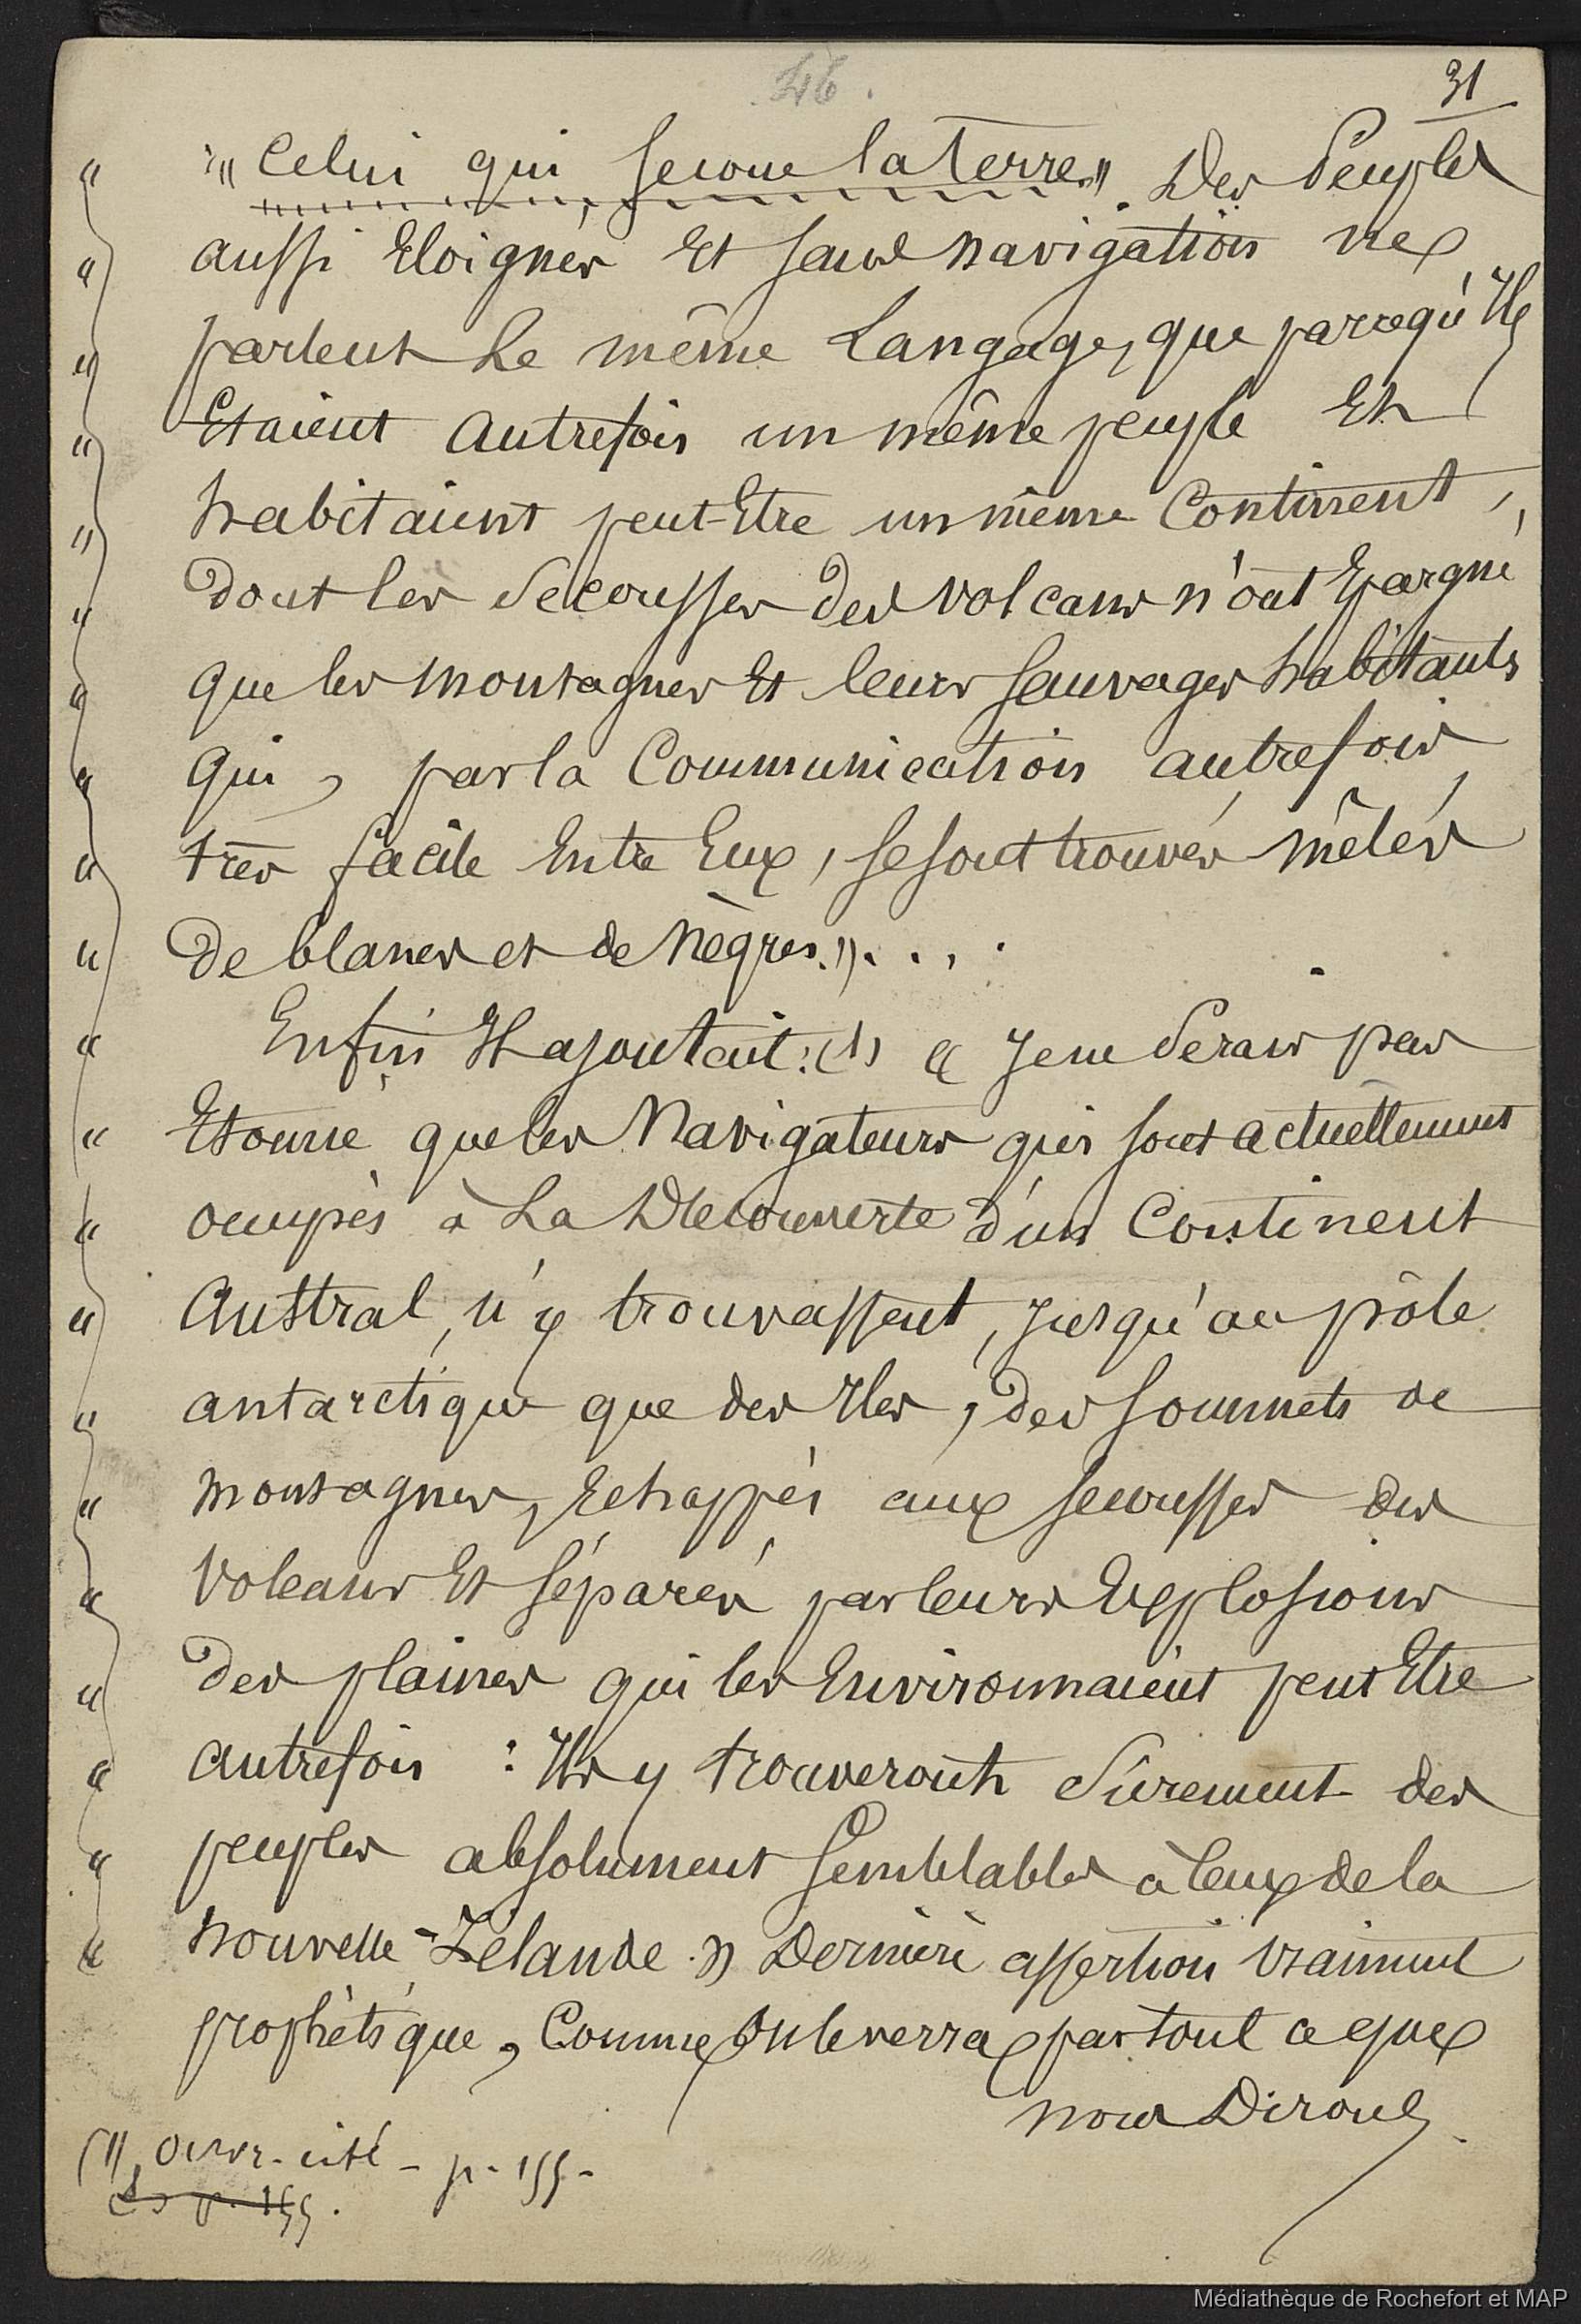 46.
31
" « Celui qui secoue la Terre. » Des Peuples
" aussi Eloignés Et sans navigation ne
" parlent Le même Langage, que parcequ'Ils
" Etaient autrefois un même peuple Et
" habitaient peut-Etre un même Continent,
" Dont les Secousses des volcans n'ont Epargné
" que les montagnes Et leurs sauvages habitants
" qui, par la Communication autrefois
" très facile Entre Eux, se sont trouvés mêlés
" De blancs et de Nègres. » . . . .
" Enfin Il ajoutait : (1) « Je ne Serais pas
" Etonné que les Navigateurs qui sont actuellement
" occupés à La Découverte d'un Continent
" Austral, n'y trouvassent, jusqu'au pôle
" antarctique que des Iles, des sommets de
" montagnes, Echappés aux secousses des
" Volcans Et séparés par leurs Explosions
" des plaines qui les Environnaient peut Etre
" autrefois : Ils y trouveront Sûrement des
" peuples absolument semblables à Ceux de la
" nouvelle-Zélande. » Dernière assertion vraiment
prophétique, Comme on le verra par tout ce que
nous Dirons.
(1) Ouvr. cité - p. 155.
do p. 155.
Médiathèque de Rochefort et MAP